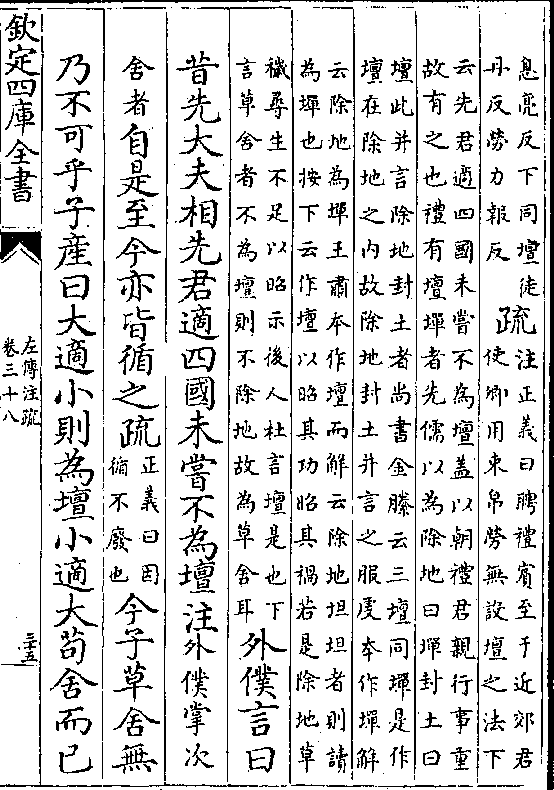 息亮反下同壇徒
丹反勞力報反
疏
注正義曰聘禮賓至于近郊君
使卿用束帛勞無設壇之法下
云先君適四國未嘗不為壇蓋以朝禮君親行事重
故有之也禮有壇墠者先儒以為除地曰墠封土曰
壇此并言除地封土者尚書金縢云三壇同墠是作
壇在除地之内故除地封土并言之服虔本作墠解
云除地為墠王肅本作壇而解云除地坦坦者則讀
為墠也按下云作壇以昭其功昭其禍若是除地草
穢尋生不足以昭示後人杜言壇是也下
言草舍者不為壇則不除地故為草舍耳
外僕言曰
昔先大夫相先君適四國未嘗不為壇注外僕掌次
舍者自是至今亦皆循之疏
正義曰因
循不廢也
今子草舍無
乃不可乎子産曰大適小則為壇小適大苟舍而已
欽定四庫全書
左傳注疏
卷三十八
三五